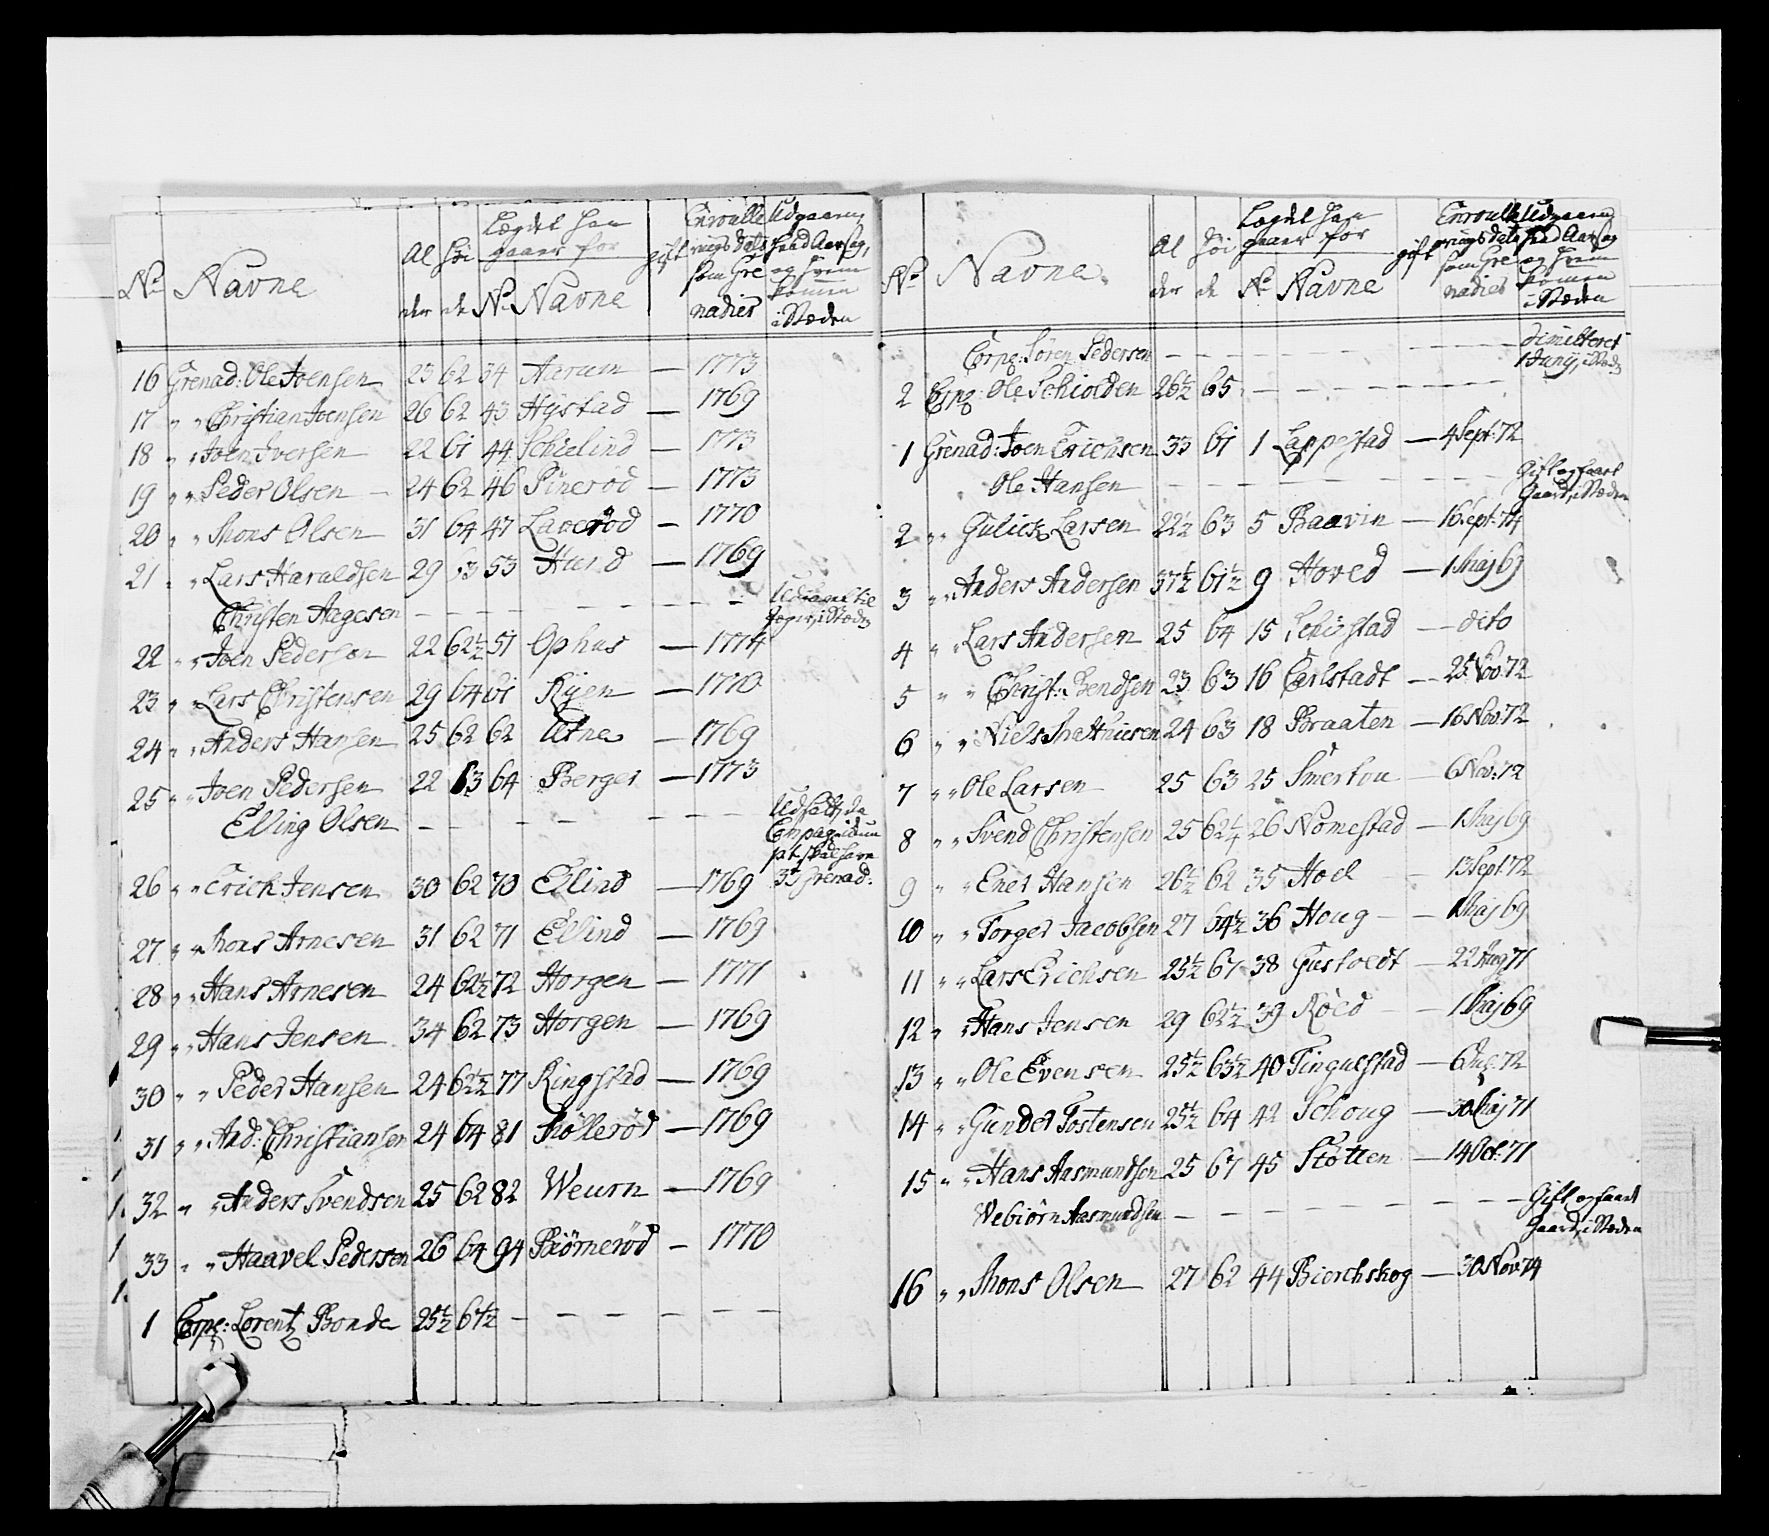 No Navne Al der Høi de Lægdet han gaaer for No Navne gift Enroulle rings Dato som Gre nadier Udgaaen, hvad Aarsag, og hvem kommen i Stæden
16 Grenad: Ole Joensen 23 62 34 Aarum — 1773
17 " " Christian Joensen 26 62 43 Hystad — 1769
18 " " Joen Iversen 22 61 44 — 1773
19 " " Peder Olsen — 24 62 46 — 1773
20 " " Mons Olsen 31 64 47 Laverød — 1770
21 " " Lars Haraldsen 29 63 53 — 1769
Christen Aagesen — — — — — — — Udtaget til Jæger, i Stæden
22 " " Joen Pedersen 22 62½ 51 Ophus — 1774
23 " " Lars Christensen 29 64 61 Ryen — 1770
24 " " Anders Hansen 25 62 62 Utne — 1769
25 " " Joen Pedersen 22 63 64 Berger — 1773
Elling Olsen — — — — — — — Udsadt, da Compag: skal have 33 Grenad:
26 " " Erich Jensen 30 62 70 Ellind — 1769
27 " " Mons Arnesen 31 62 71 Ellind — 1769
28 " " Hans Arnesen 24 62½ 72 Horgen — 1771
29 " " Hans Jensen 34 62 73 Horgen — 1769
30 " " Peder Hansen 24 62½ 77 Ringstad — 1769
31 " " And: Christiansen 24 64 81 Møllerød — 1769
32 " " Anders Svendsen 25 62 82 Weurn — 1769
33 " " Haavel Pedersen 26 64 94 Biørnerød — 1770
1 Corp: Lorentz Bonde 25½ 67½ — — — — — —
No Navne. Al der Høi de Lægdet han gaaer for No Navne gift Enroulle rings Dato som Gre nadier Udgaaen, hvad Aarsag og hvem kommen i Stæden
Corp: Søren Pedersen — — — — — — — dimitteret 1 Juny, i Stæd
2 Corp: Ole Schiolden 26½ 65 — — — — — —
1 Grenad: Joen Erichsen 33 61 1 Lappestad — 4 Sept: 72
Ole Hansen — — — — — — — Gift og faaet Gaard, i Stæden
2 " " Gulick Larsen 22½ 63 5 Baavin — 16 Sept: 74
3 " " Anders Andersen 37½ 61½ 9 Hoved — 1 Maj 69
4 " " Lars Andersen 25 64 15 — dito
5 " " Christ: Bendsen 23 63 16 Carlstadt — 25 Nov: 72
6 " " Niels Mathiesen 24 63 18 Braaten — 16 Nov: 72
7 " " Ole Larsen 25 63 25 Smertou — 6 Nov: 72
8 " " Svend Christensen 25 62¼ 26 Nomestad — 1 Maj 69
9 " " Ener Hansen 26½ 62 35 Hoel — 13 Sept 72
10 " " Torger Jacobsen 27 64½ 36 Houg — 1 Maj 69
11 " " Lars Erichsen 25½ 67 38 — 22 Aug 71
12 " " Hans Jensen 29 62½ 39 Røed — 1 Maj 69
13 " " Ole Evensen 25½ 63½ 40 Tingulstad — 6 72
14 " " Gunder Tostensen 25½ 64 42 Schoug — 30 Maj 71
15 " " Hans Aasmundsen 25 67 45 Støtten — 14 Oct: 71
Webiørn Aasmundsen — — — — — — — Gift og faaet Gaard, i Stæden
16 " " Mons Olsen 27 62 44 Bierchskog — 30 Nov 74